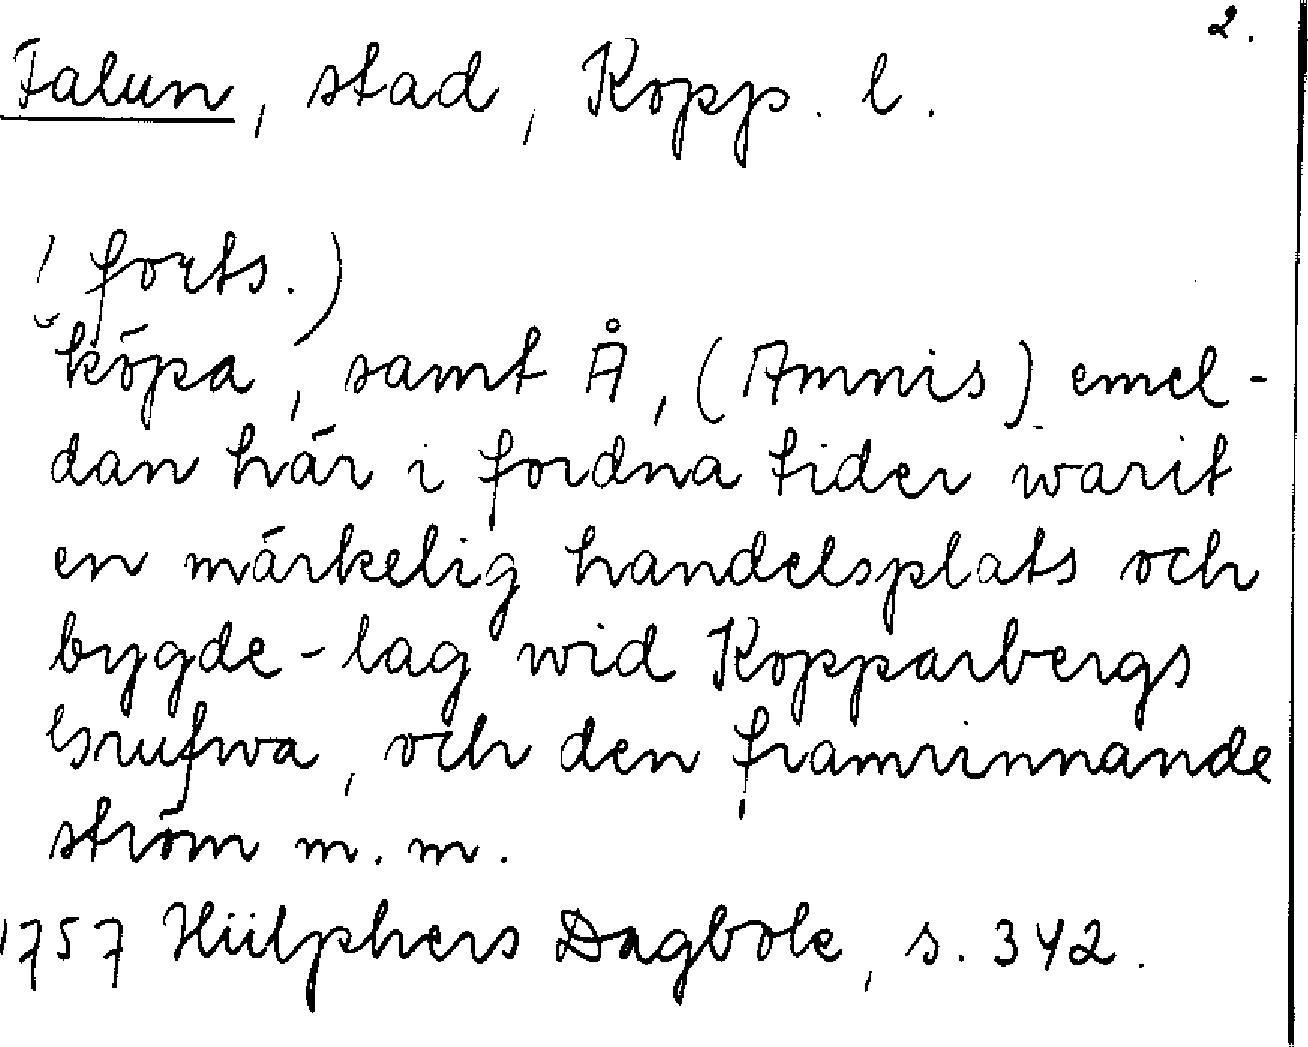 2.
Falun, stad, Kopp. l.
(forts.)
köpa, samt Å, (Amnis) emel-
dan här i fordna tider warit
en märkelig handelsplats och
bygde-lag wid Kopparbergs
Grufwa, och den framrinnande
ström m. m.
1757 Hülphers Dagbok, s. 342.